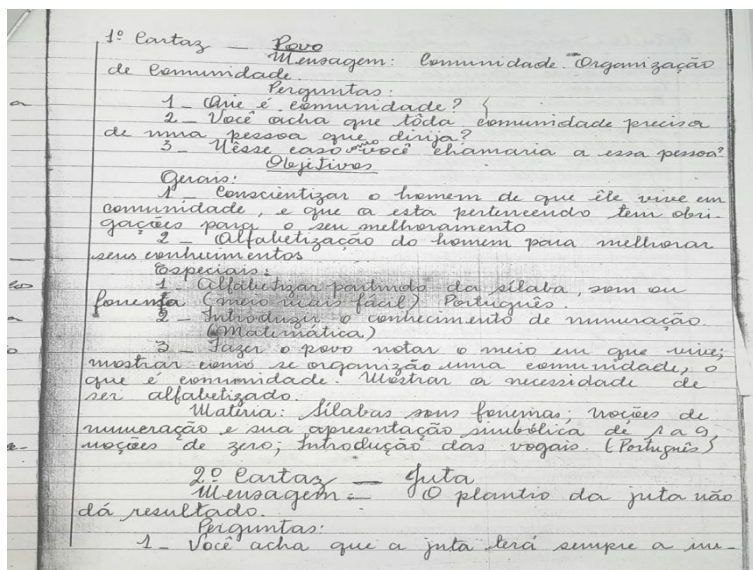 1º Cartaz — Povo
Mensagem: Comunidade. Organização
de Comunidade.
Perguntas:
1 - Que é comunidade?
2 - Você acha que tôda comunidade precisa
de uma pessoa que dirija?
3 - Nêsse caso como você chamaria a essa pessoa?
Objetivos
Gerais:
1 - Conscientizar o homem de que êle vive em
comunidade, e que a esta pertencendo tem obri-
gações para o seu melhoramento
2 - Alfabetização do homem para melhorar
seus conhecimentos
Especiais:
1 - Alfabetizar partindo da sílaba, som ou
fonema (meio mais fácil) Português.
2 - Introduzir o conhecimento de numeração.
(Matemática)
3 - Fazer o povo notar o meio em que vive;
mostrar como se organização uma comunidade, o
que é comunidade. Mostrar a necessidade de
ser alfabetizado.
Matéria: Sílabas sons fonemas; noções de
numeração e sua apresentação simbólica de 1 a 9,
noções de zero; Introdução das vogais. (Português)
2º Cartaz — Juta
Mensagem — O plantio da juta não
dá resultado.
Perguntas:
1 - Você acha que a juta terá sempre a me-